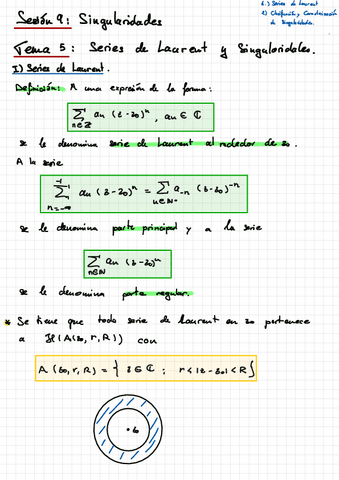 Sesión 9: Singularidades
1) Series de Laurent
2) Clasificación y Caracterización de Singularidades.
Tema 5: Series de Laurent y Singularidades.
I) Series de Laurent.
Definición: A una expresión de la forma:
∑_{n∈ℤ} an (z-z0)^n , an ∈ ℂ
se le denomina serie de Laurent alrededor de z0.
A la serie
∑_{n=-∞}^{-1} an (z-z0)^n = ∑_{n∈ℕ*} a-n (z-z0)^{-n}
se le denomina parte principal y a la serie
∑_{n∈ℕ} an (z-z0)^n
se le denomina parte regular.
* Se tiene que toda serie de Laurent en z0 pertenece
a ℋ(A(z0, r, R)) con
A(z0, r, R) = { z ∈ ℂ ; r < |z-z0| < R }
z0